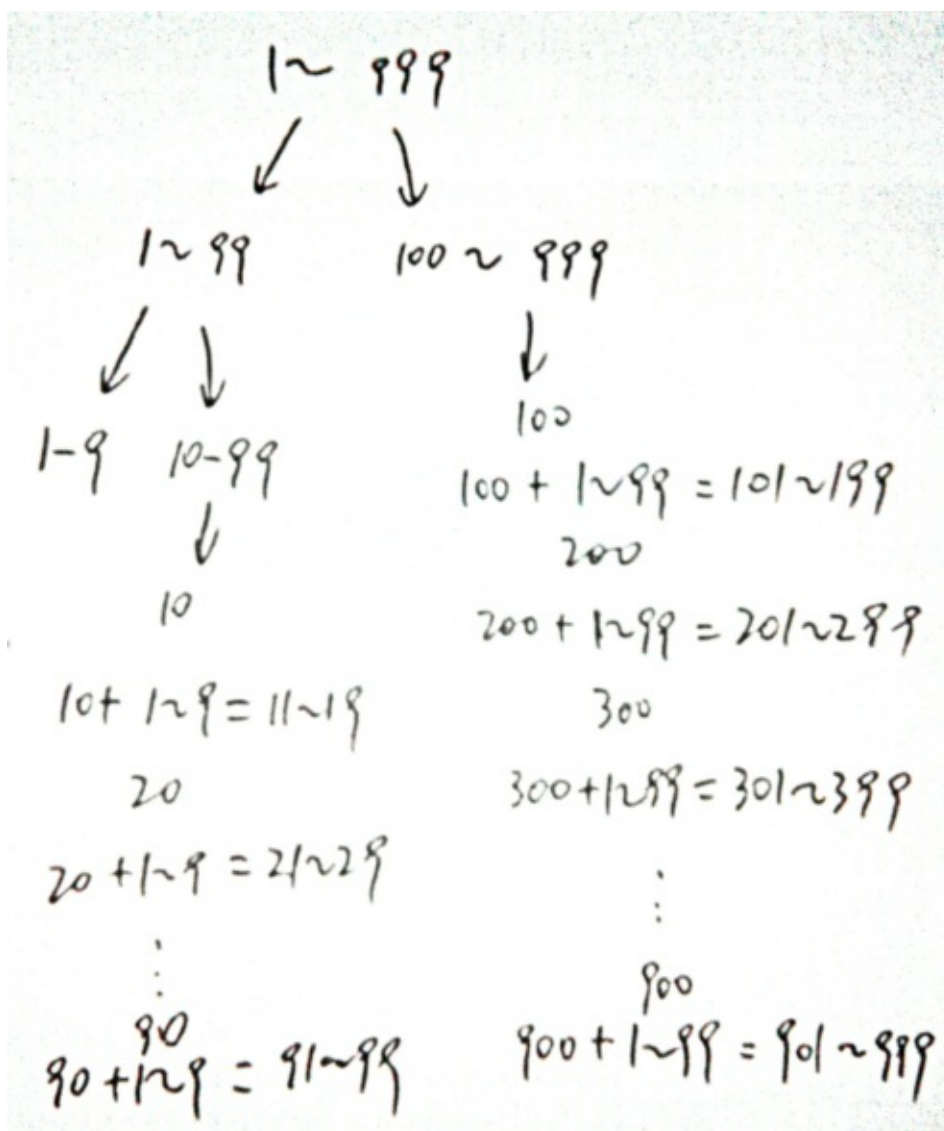 1~ 999
1~99 100 ~ 999
1-9 10-99
10
10+ 1~9 = 11~19
20
20 +1~9 = 21~29
⋮
90
90 +1~9 = 91~99
100
100 + 1~99 = 101~199
200
200 + 1~99 = 201~299
300
300+1~99 = 301~399
⋮
900
900 + 1~99 = 901 ~ 999